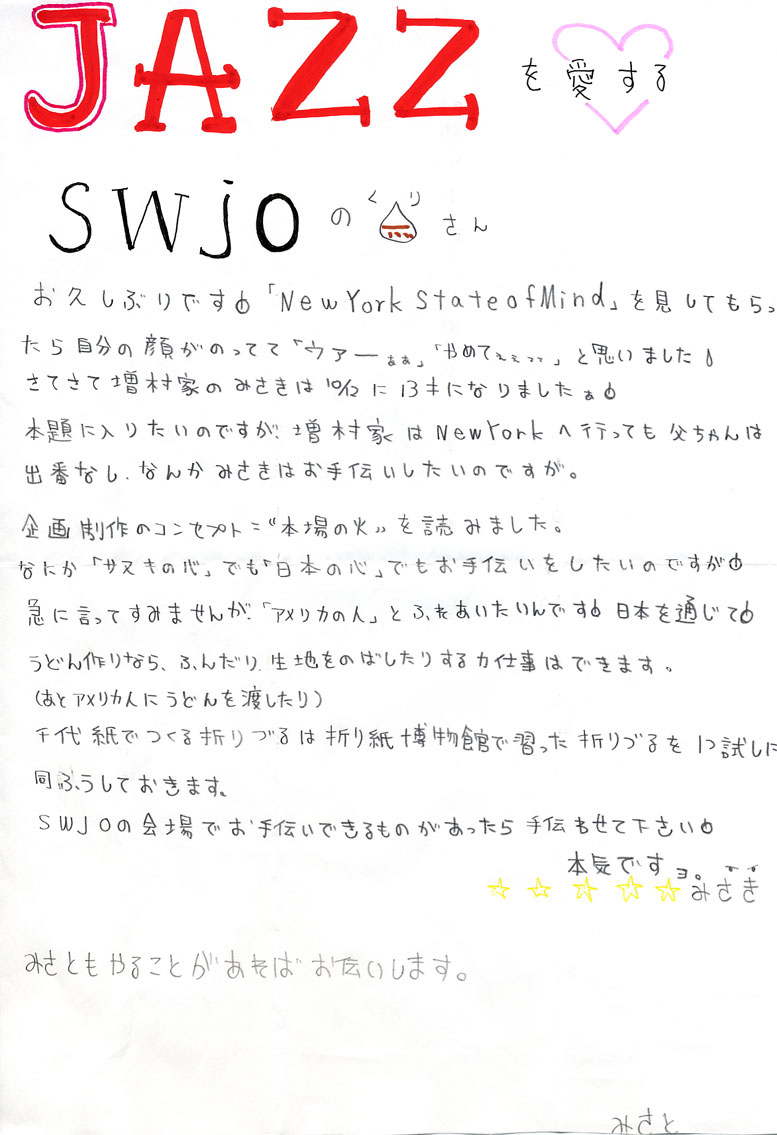 JAZZ を愛する
SWJO の くり さん
お久しぶりです!「New York State of Mind」を見してもらっ
たら自分の顔がのってて「ウァーぁぁ」「やめてぇぇっっ」と思いました!
さてさて増村家のみさきは10/12に13才になりましたぁ!
本題に入りたいのですが、増村家はNew Yorkへ行っても父ちゃんは
出番なし、なんかみさきはお手伝いしたいのですが。
企画制作のコンセプト="本場の火"を読みました。
なにか「サヌキの心」でも「日本の心」でもお手伝いをしたいのですが!
急に言ってすみませんが、「アメリカの人」とふれあいたいんです!日本を通じて!
うどん作りなら、ふんだり、生地をのばしたりする力仕事はできます。
(あとアメリカ人にうどんを渡したり)
千代紙でつくる折りづるは折り紙博物館で習った折りづるを1つ試しに
同ふうしておきます。
SWJOの会場でお手伝いできるものがあったら手伝わせて下さい!
本気ですョ。
みさき
みさともやることがあそばお伝いします。
みさと